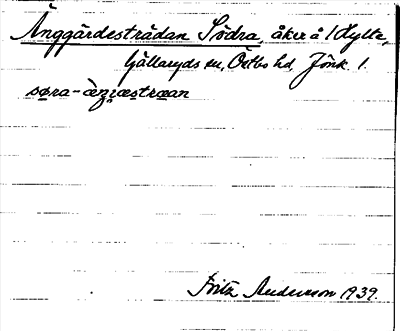 Änggärdesträdan Södra, åker å 1 Hylte,
Gällaryds sn, Östbo hd, Jönk. l.
søra-æŋıæstræan
Fritz Anderson 1939.